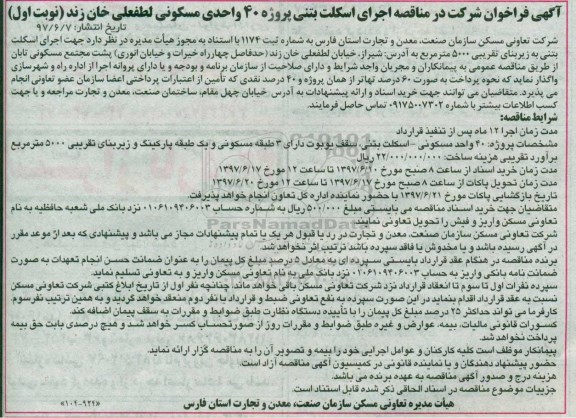 آگهی فراخوان شرکت در مناقصه اجرای اسکلت بتنی پروژه ۴۰ واحدی مسکونی لطفعلی خان زند (نوبت اول)
تاریخ انتشار: ۹۷/۶/۷
شرکت تعاونی مسکن سازمان صنعت، معدن و تجارت استان فارس به شماره ثبت ۱۱۷۴ با استناد به مجوز هیأت مدیره در نظر دارد جهت اجرای اسکلت
بتنی به زیربنای تقریبی ۵۰۰۰ متر مربع به آدرس: شیراز، خیابان لطفعلی خان زند (حدفاصل چهارراه خیرات و خیابان انوری) پشت مجتمع مسکونی تابان
از طریق مناقصه عمومی به پیمانکاران و مجریان واجد شرایط و دارای صلاحیت از سازمان برنامه و بودجه و یا دارای پروانه اجرا از اداره راه و شهرسازی
واگذار نماید که نحوه پرداخت به صورت ۶۰ درصد تهاتر از همان پروژه و ۴۰ درصد نقدی که تأمین از اعتبارات پرداختی اعضا سازمان عضو تعاونی انجام
می پذیرد. متقاضیان می توانند جهت خرید اسناد و ارائه پیشنهادات به آدرس: خیابان چهل مقام، ساختمان صنعت، معدن و تجارت مراجعه و یا جهت
کسب اطلاعات بیشتر با شماره ۰۹۱۷۵۰۰۷۳۰۲ تماس حاصل فرمایند.
شرایط مناقصه:
مدت زمان اجرا ۱۲ ماه پس از تنفیذ قرارداد
مشخصات پروژه: ۴۰ واحد مسکونی - اسکلت بتنی، سقف یوبوت دارای ۳ طبقه مسکونی و یک طبقه پارکینگ و زیربنای تقریبی ۵۰۰۰ مترمربع
برآورد تقریبی هزینه ساخت: ۲۲/۰۰۰/۰۰۰/۰۰۰ ریال
مدت زمان خرید اسناد از ساعت ۸ صبح مورخ ۱۳۹۷/۶/۱۰ تا ساعت ۱۲ مورخ ۱۳۹۷/۶/۱۷
مدت زمان تحویل پاکات از ساعت ۸ صبح مورخ ۱۳۹۷/۶/۱۷ تا ساعت ۱۲ مورخ ۱۳۹۷/۶/۲۰
تاریخ بازگشایی پاکات مورخ ۱۳۹۷/۶/۲۱ با حضور نماینده اداره کل تعاون انجام خواهد پذیرفت.
متقاضیان جهت خرید اسناد مناقصه می بایستی مبلغ ۵۰۰/۰۰۰ ریال به شماره حساب ۰۱۰۶۱۰۹۴۰۶۰۰۳ نزد بانک ملی شعبه حافظیه به نام
تعاونی مسکن واریز و فیش را تحویل تعاونی نمایند.
شرکت تعاونی مسکن سازمان صنعت، معدن و تجارت در رد یا قبول هر یک یا تمام پیشنهادات مجاز می باشد و پیشنهادی که بعد از موعد مقرر
در آگهی رسیده باشد و یا مخدوش یا فاقد سپرده باشد ترتیب اثر نخواهد شد.
برنده مناقصه در هنگام عقد قرارداد بایستی سپرده ای به معادل ۵ درصد مبلغ کل پیمان را به عنوان ضمانت حسن انجام تعهدات به صورت
ضمانت نامه بانکی واریز به حساب ۰۱۰۶۱۰۹۴۰۶۰۰۳ نزد بانک ملی به نام تعاونی مسکن واریز و به تعاونی تسلیم نماید.
سپرده نفرات اول تا سوم تا انعقاد قرارداد نزد شرکت تعاونی مسکن باقی خواهد ماند چنانچه نفر اول از تاریخ ابلاغ کتبی شرکت تعاونی مسکن
نسبت به عقد قرارداد اقدام ننماید در این صورت سپرده به نفع تعاونی ضبط و قرارداد با نفر دوم منعقد خواهد گردید و به همین ترتیب نفر سوم.
کارفرما می تواند حداکثر ۲۵ درصد مبلغ کل پیمان را با تأییده دستگاه نظارت طبق ضوابط و مقررات به سقف پیمان اضافه کند.
کسورات قانونی مالیات، بیمه، عوارض و غیره طبق ضوابط و مقررات روز از صورتحساب کسر خواهد شد و هیچ درصدی بابت حق بیمه
پرداخت نخواهد شد.
پیمانکار موظف است کلیه کارکنان و عوامل اجرایی خود را بیمه و تصویر آن را به مناقصه گزار ارائه نماید.
حضور پیشنهاد دهندگان و یا نماینده قانونی در کمیسیون آگهی مناقصه آزاد است.
هزینه درج و صدور آگهی مناقصه به عهده برنده می باشد.
جزییات موضوع مناقصه در اسناد الحاقی ذکر شده قابل استناد است.
هیأت مدیره تعاونی مسکن سازمان صنعت، معدن و تجارت استان فارس
«۱۰۲-۹۲۴»
ParsNamadData